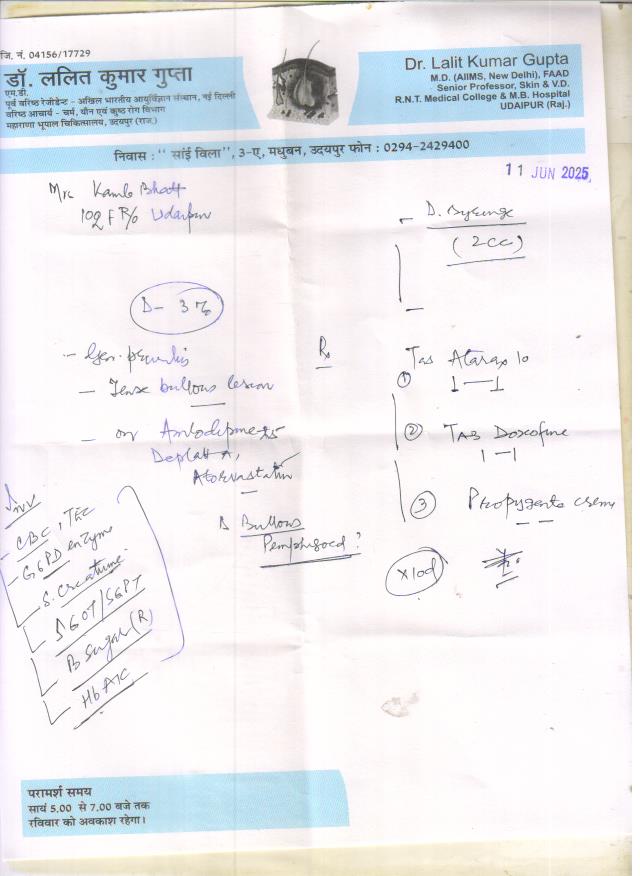 जि. नं. 04156/17729
डॉ. ललित कुमार गुप्ता
एम.डी.
पूर्व वरिष्ठ रेजीडेन्ट - अखिल भारतीय आयुर्विज्ञान संस्थान, नई दिल्ली
वरिष्ठ आचार्य - चर्म, यौन एवं कुष्ठ रोग विभाग
महाराणा भूपाल चिकित्सालय, उदयपुर (राज.)
Dr. Lalit Kumar Gupta
M.D. (AIIMS, New Delhi), FAAD
Senior Professor, Skin & V.D.
R.N.T. Medical College & M.B. Hospital
UDAIPUR (Raj.)
निवास : " सांई विला", 3-ए, मधुबन, उदयपुर फोन : 0294-2429400
11 JUN 2025
Bhatt
R/o Udaipur
(2cc)
D-
Gen.
- Tense bullous lesion
- on Amlodipine
Deplatt A,
Atorvastatin
Δ Bullous
Pemphigoid?
Inv
- CBC,
- G6PD enzyme
S. Creatinine
SGOT/SGPT
B Sugar (R)
HbA1C
Rx
Tab Atarax 10
①
1—1
② TAB
1-1
③ cream
x10d
परामर्श समय
सायं 5.00 से 7.00 बजे तक
रविवार को अवकाश रहेगा।